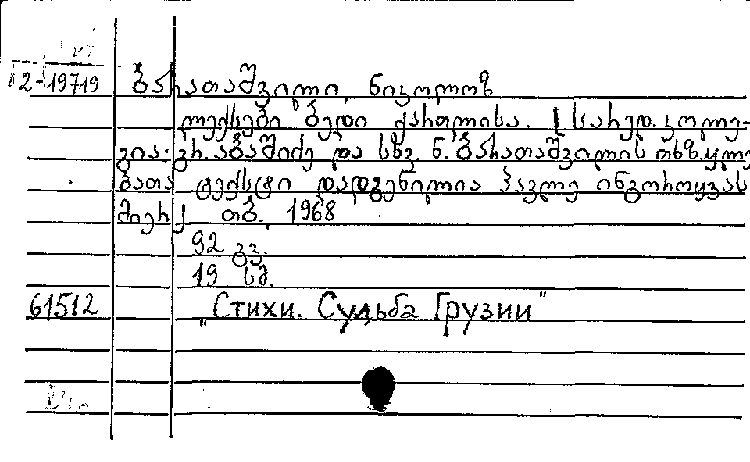 2-19719
ბარათაშვილი, ნიკოლოზ
ლექსები. ბედი ქართლისა. [სარედ. კოლე-
გია: გრ. აბაშიძე და სხვ. ნ. ბარათაშვილის თხზ.
ბათა ტექსტი დადგენილია პავლე ინგოროყვას
მიერ] თბ., 1968
92 გვ.
19 სმ.
61512
„Стихи. Судьба Грузии"